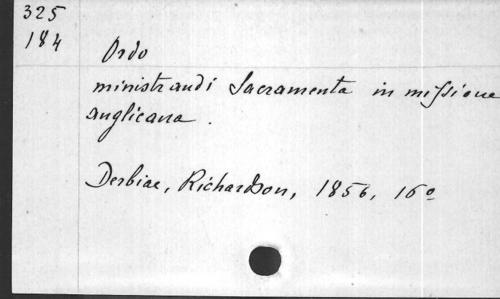 325
184
Ordo
ministrandi Sacramenta in missione
anglicana.
Derbiae, Richardson, 1856, 16º